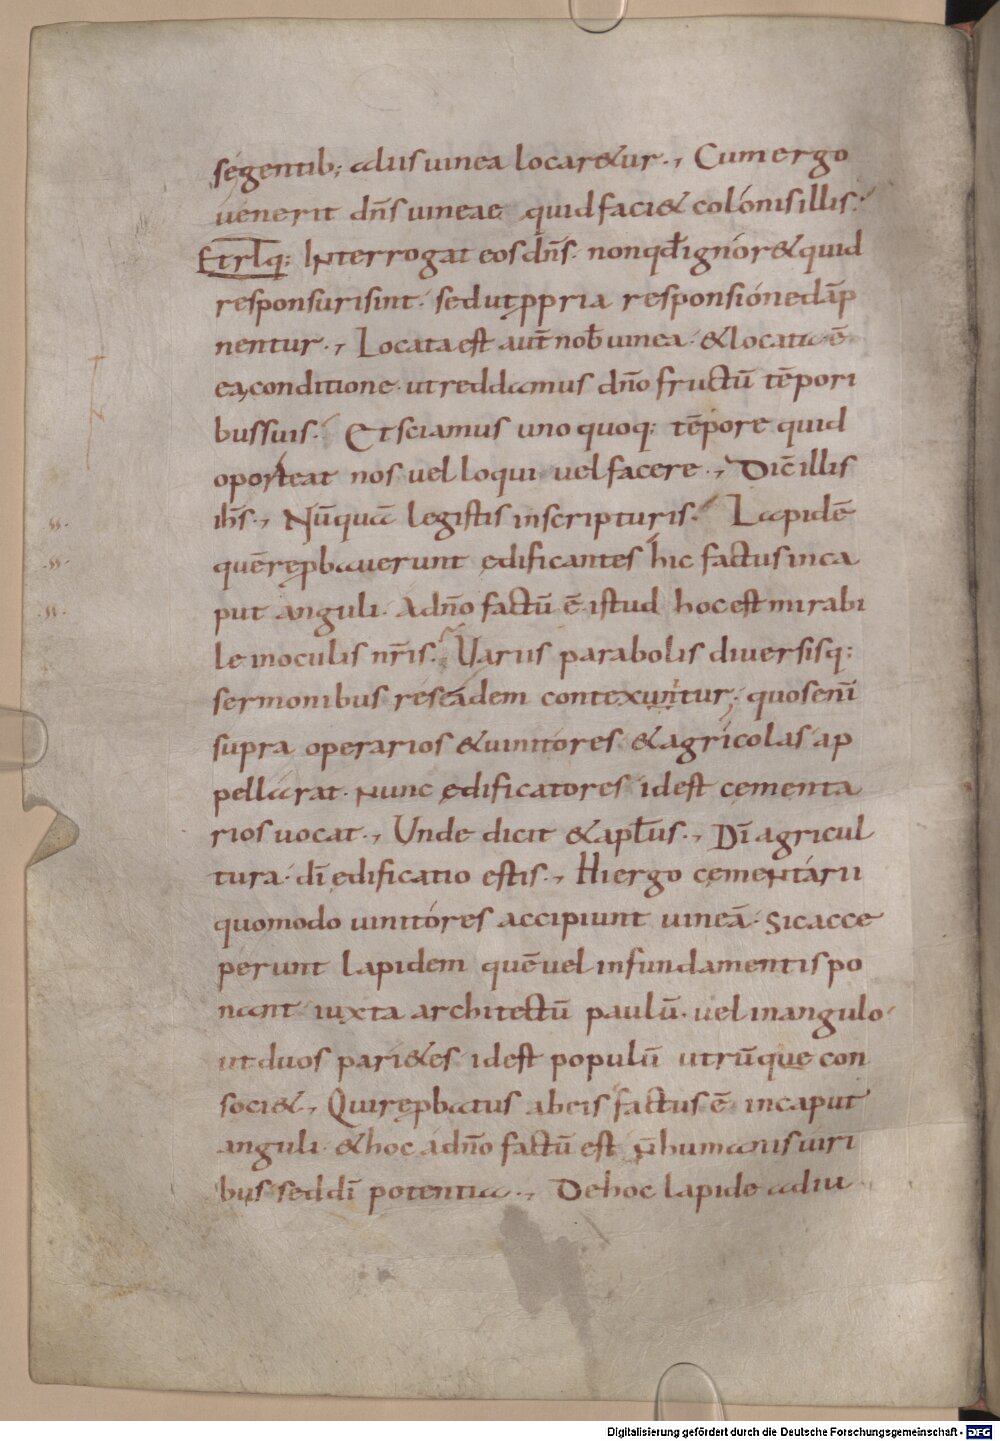 segentib; aliis uinea locar&ur., Cum ergo
uenerit dn̄s uineae quid faci& colonis illis:
Et rlq: Interrogat eos dn̄s. non qđ ignor& quid
responsuri sint. sed ut ꝓpria responsione dāp
nentur., Locata est aut̄ nob̄ uinea. & locata ē
ea conditione. ut reddamus dn̄o fructū tēpori
bus suis. Et sciamus uno quoq: tēpore quid
oporteat nos uel loqui uel facere., Dic̄ illis
ih̄s., Nūquā legistis in scripturis. Lapidē
quē reꝓbauerunt ędificantes hic factus in ca
put anguli. A dn̄o factū ē istud hoc est mirabi
le in oculis nr̄is. Variis parabolis diuersisq:
sermonibus res eadem contexuntur. quos enī
supra operarios & uinitores & agricolas ap
pellarat. nunc ędificatores id est cementa
rios uocat., Unde dicit & apłus., Dī agricul
tura. dī ędificatio estis., Hi ergo cęmentarii
quomodo uinitores accipiunt uineā. sic acce
perunt lapidem quē uel in fundamentis po
nant iuxta architectū paulū. uel in angulo
ut duos pari&es id est populū utrūque con
soci&., Qui reꝓbatus ab eis factus ē in caput
anguli. & hoc a dn̄o factū est n̄ humanis uiri
bus sed dī potentia., De hoc lapide adiu
Digitalisierung gefördert durch die Deutsche Forschungsgemeinschaft - DFG